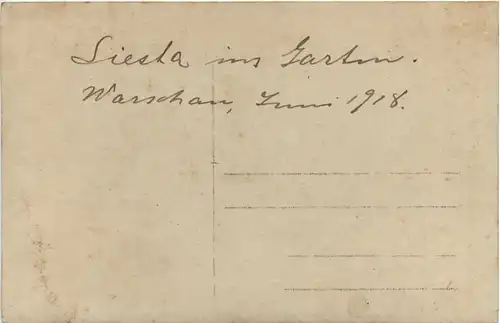 Siesta im Garten.
Warschau, Juni 1918.